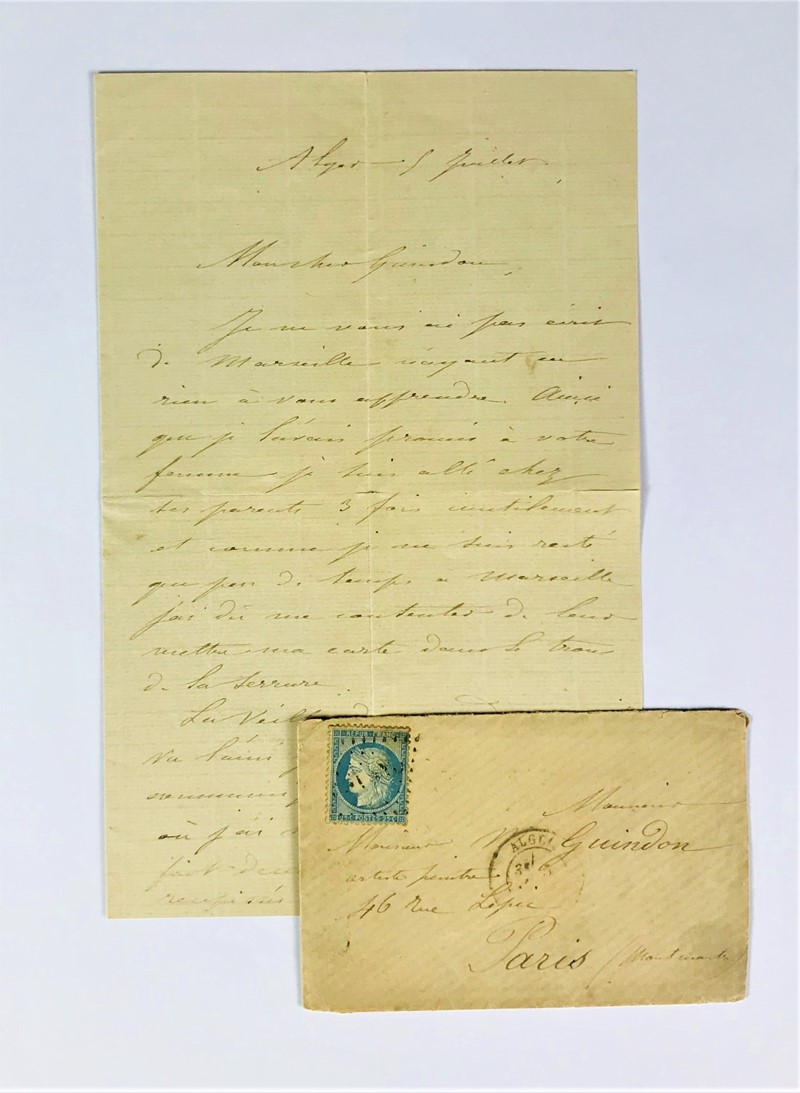 Alger 5 Juillet
Mon cher Guindon,
Je ne vous ai pas écrit
de Marseille n'ayant eu
rien à vous apprendre. Ainsi
que je l'avais promis à votre
femme je suis allé chez
ses parents 3 fois inutilement
et comme je ne suis resté
que peu de temps à Marseille
j'ai dû me contenter de leur
mettre ma carte dans le trou
de la serrure.
La Veille
va
où j'ai
REPUB. FRANC.
25 c POSTES 25 c
ALGER
Monsieur
Monsieur M Guindon
artiste peintre
46 rue Lepic
Paris (Montmartre)